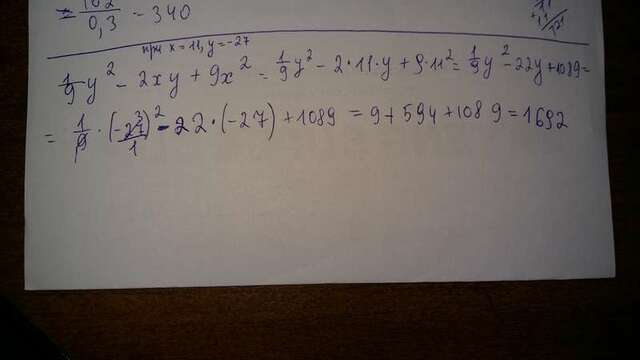 = 102/0,3 - 340
при x = 11, y = -27
1/9 y² - 2xy + 9x² = 1/9 y² - 2·11·y + 9·11² = 1/9 y² - 22y + 1089 =
= 1/9 · (-27)² - 22 · (-27) + 1089 = 9 + 594 + 1089 = 1692